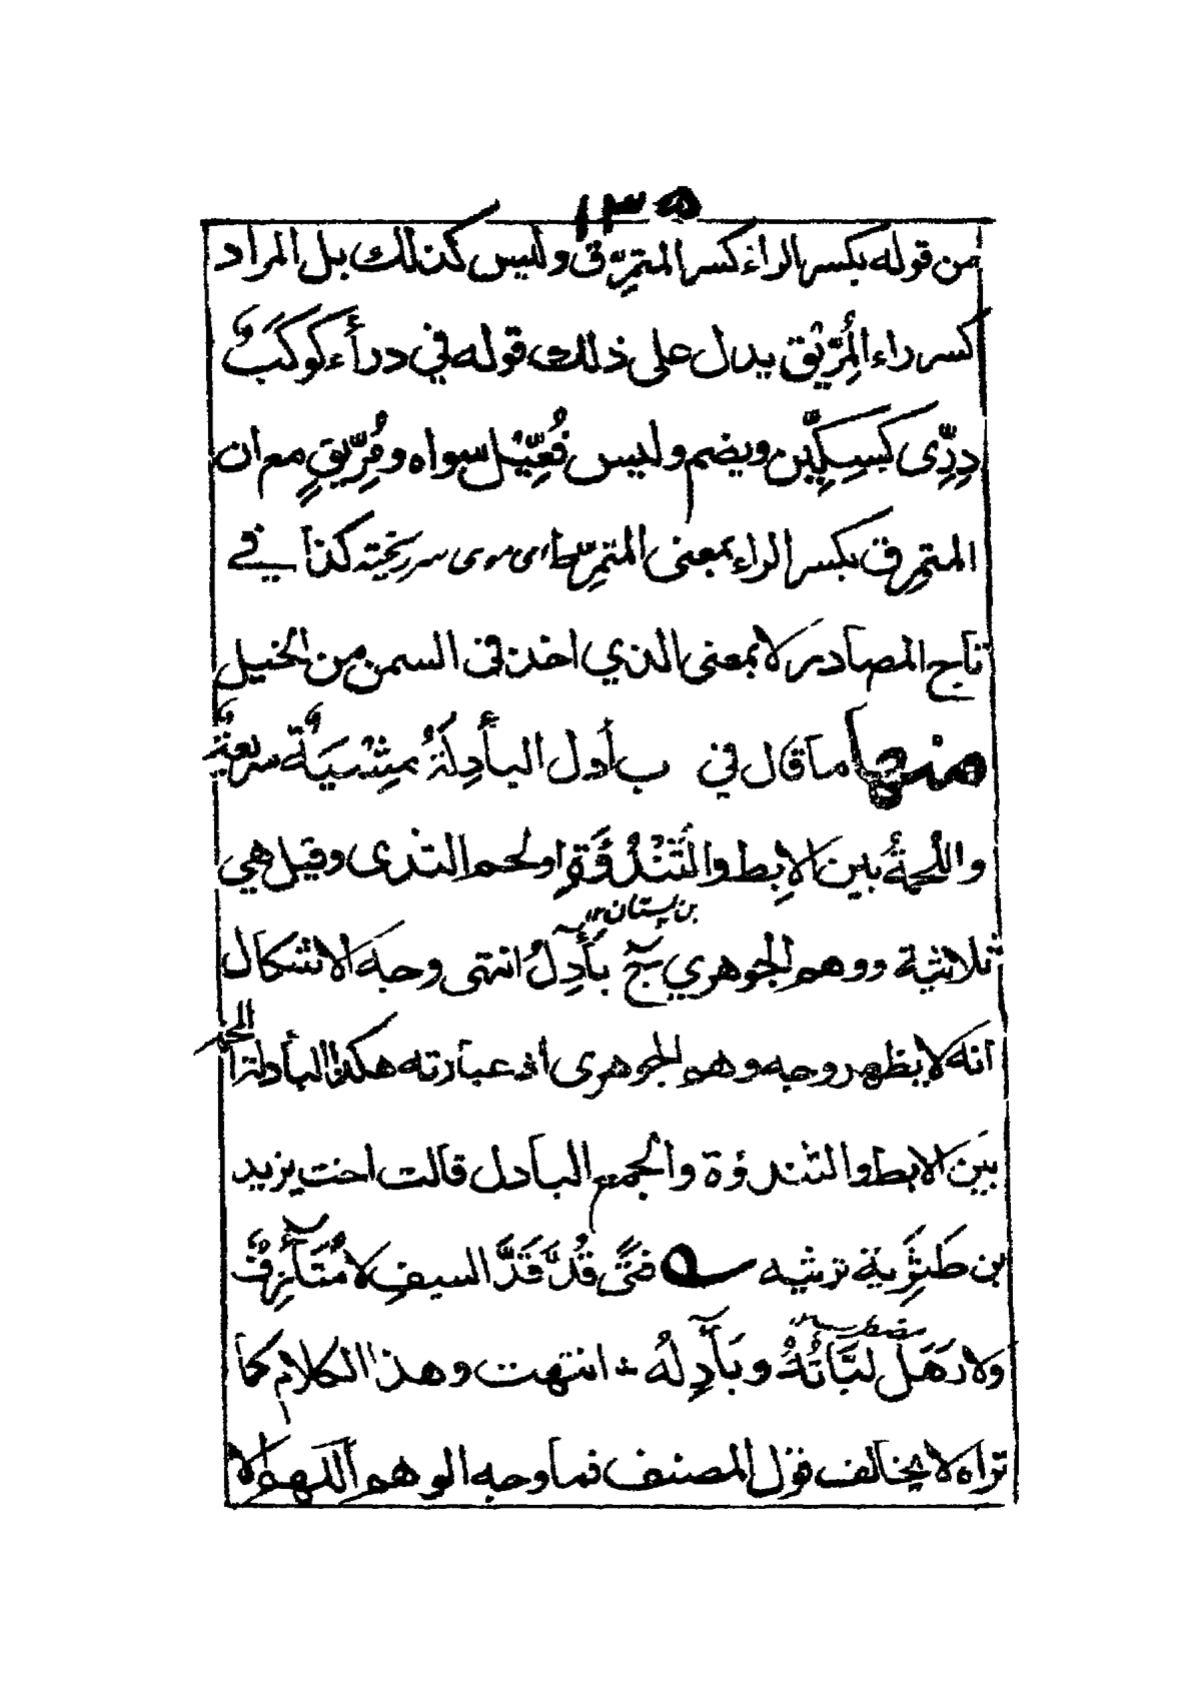 ١٣٥
من قوله بكسر الراء كسر المتمرِّق وليس كذلك بل المراد
كسر راء المُرِّيق يدل على ذلك قوله في درأ كَوكَبٌ
دِرِّى كسِكِّين ويضم وليس فُعِّيل سواه ومُرِّيقٍ مع ان
المتمرق بكسر الراء بمعنى المتمرِّط اى موى سر ريخته كذا في
تاج المصادر لا بمعنى الذي اخذ فى السمن من الخيل
منها ما قال في بأدل البأدِلَةُ مِشْيَةٌ سريعةٌ
واللُحمةُ بين الاِبط والثَّنْدُؤَةِ او لحم الثدى وقيل هي
بن پستان
ثلاثية ووهم الجوهري ج بَآدِلُ انتهى وجه الاشكال
انه لا يظهر وجه وهم الجوهرى اذ عبارته هكذا البأدلة اللحم
بَين الابط والثندؤة والجمع البآدل قالت اخت يزيد
بن طَثْرِية ترثيه فتًى قُدَّ قَدَّ السيفِ لا مُتَآزِفٌ
ولا رَهَلٌ لَبَّاتُهُ وبَآدِلُهُ انتهت وهذا الكلام كما
تراه لا يخالف قول المصنف فما وجه الوهم اللهم الا